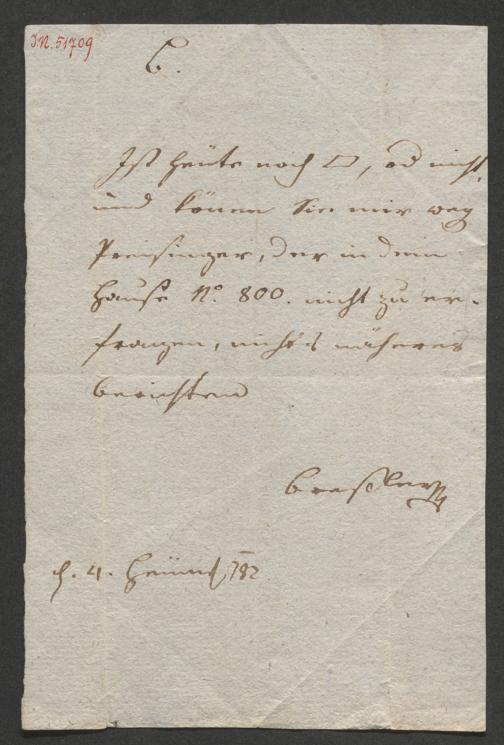 I.N. 51709
C.
Ist heute noch ▭, od nicht,
und könen Sie mir weg
Preisinger, der in dem
Hause No. 800. nicht zu er-
fragen, nichts näheres
berichten
d. 4. 782